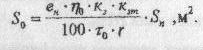 S₀ = (eₙ · η₀ · κ₃ · κ₃ₘ) / (100 · τ₀ · r) · Sₙ , м².